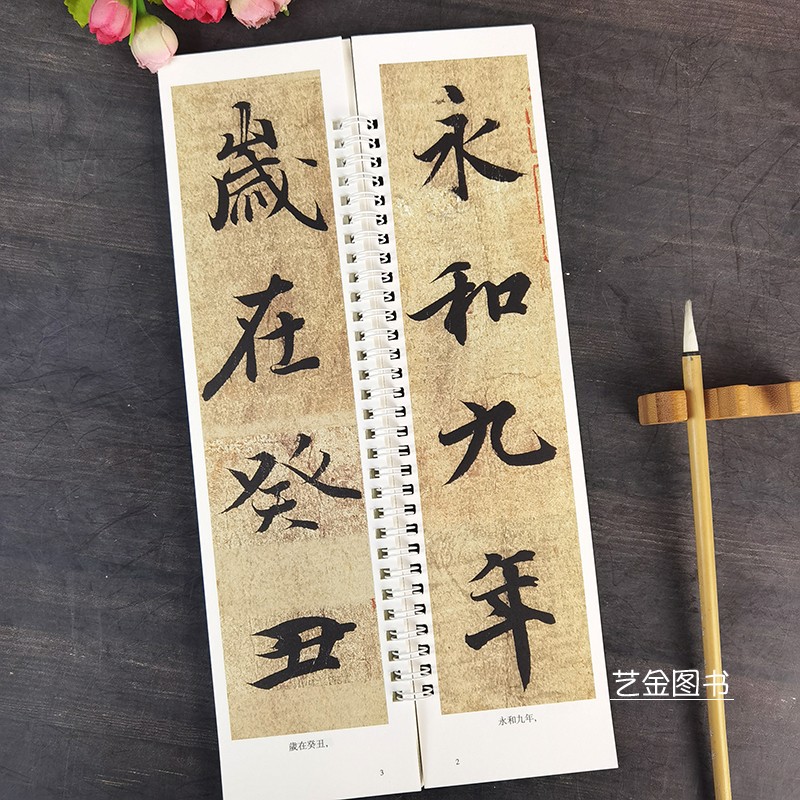 永和九年
永和九年，
2
歲在癸丑
歲在癸丑，
3
艺金图书